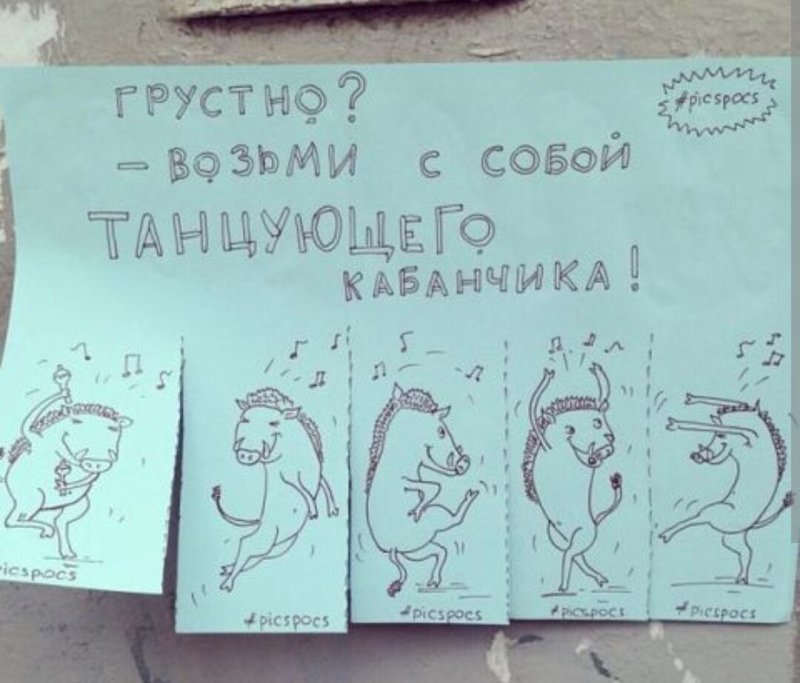 ГРУСТНО?
#picspocs
– ВОЗЬМИ С СОБОЙ
ТАНЦУЮЩЕГО
КАБАНЧИКА!
icspocs
#picspocs
#picspocs
#picspocs
#picspocs